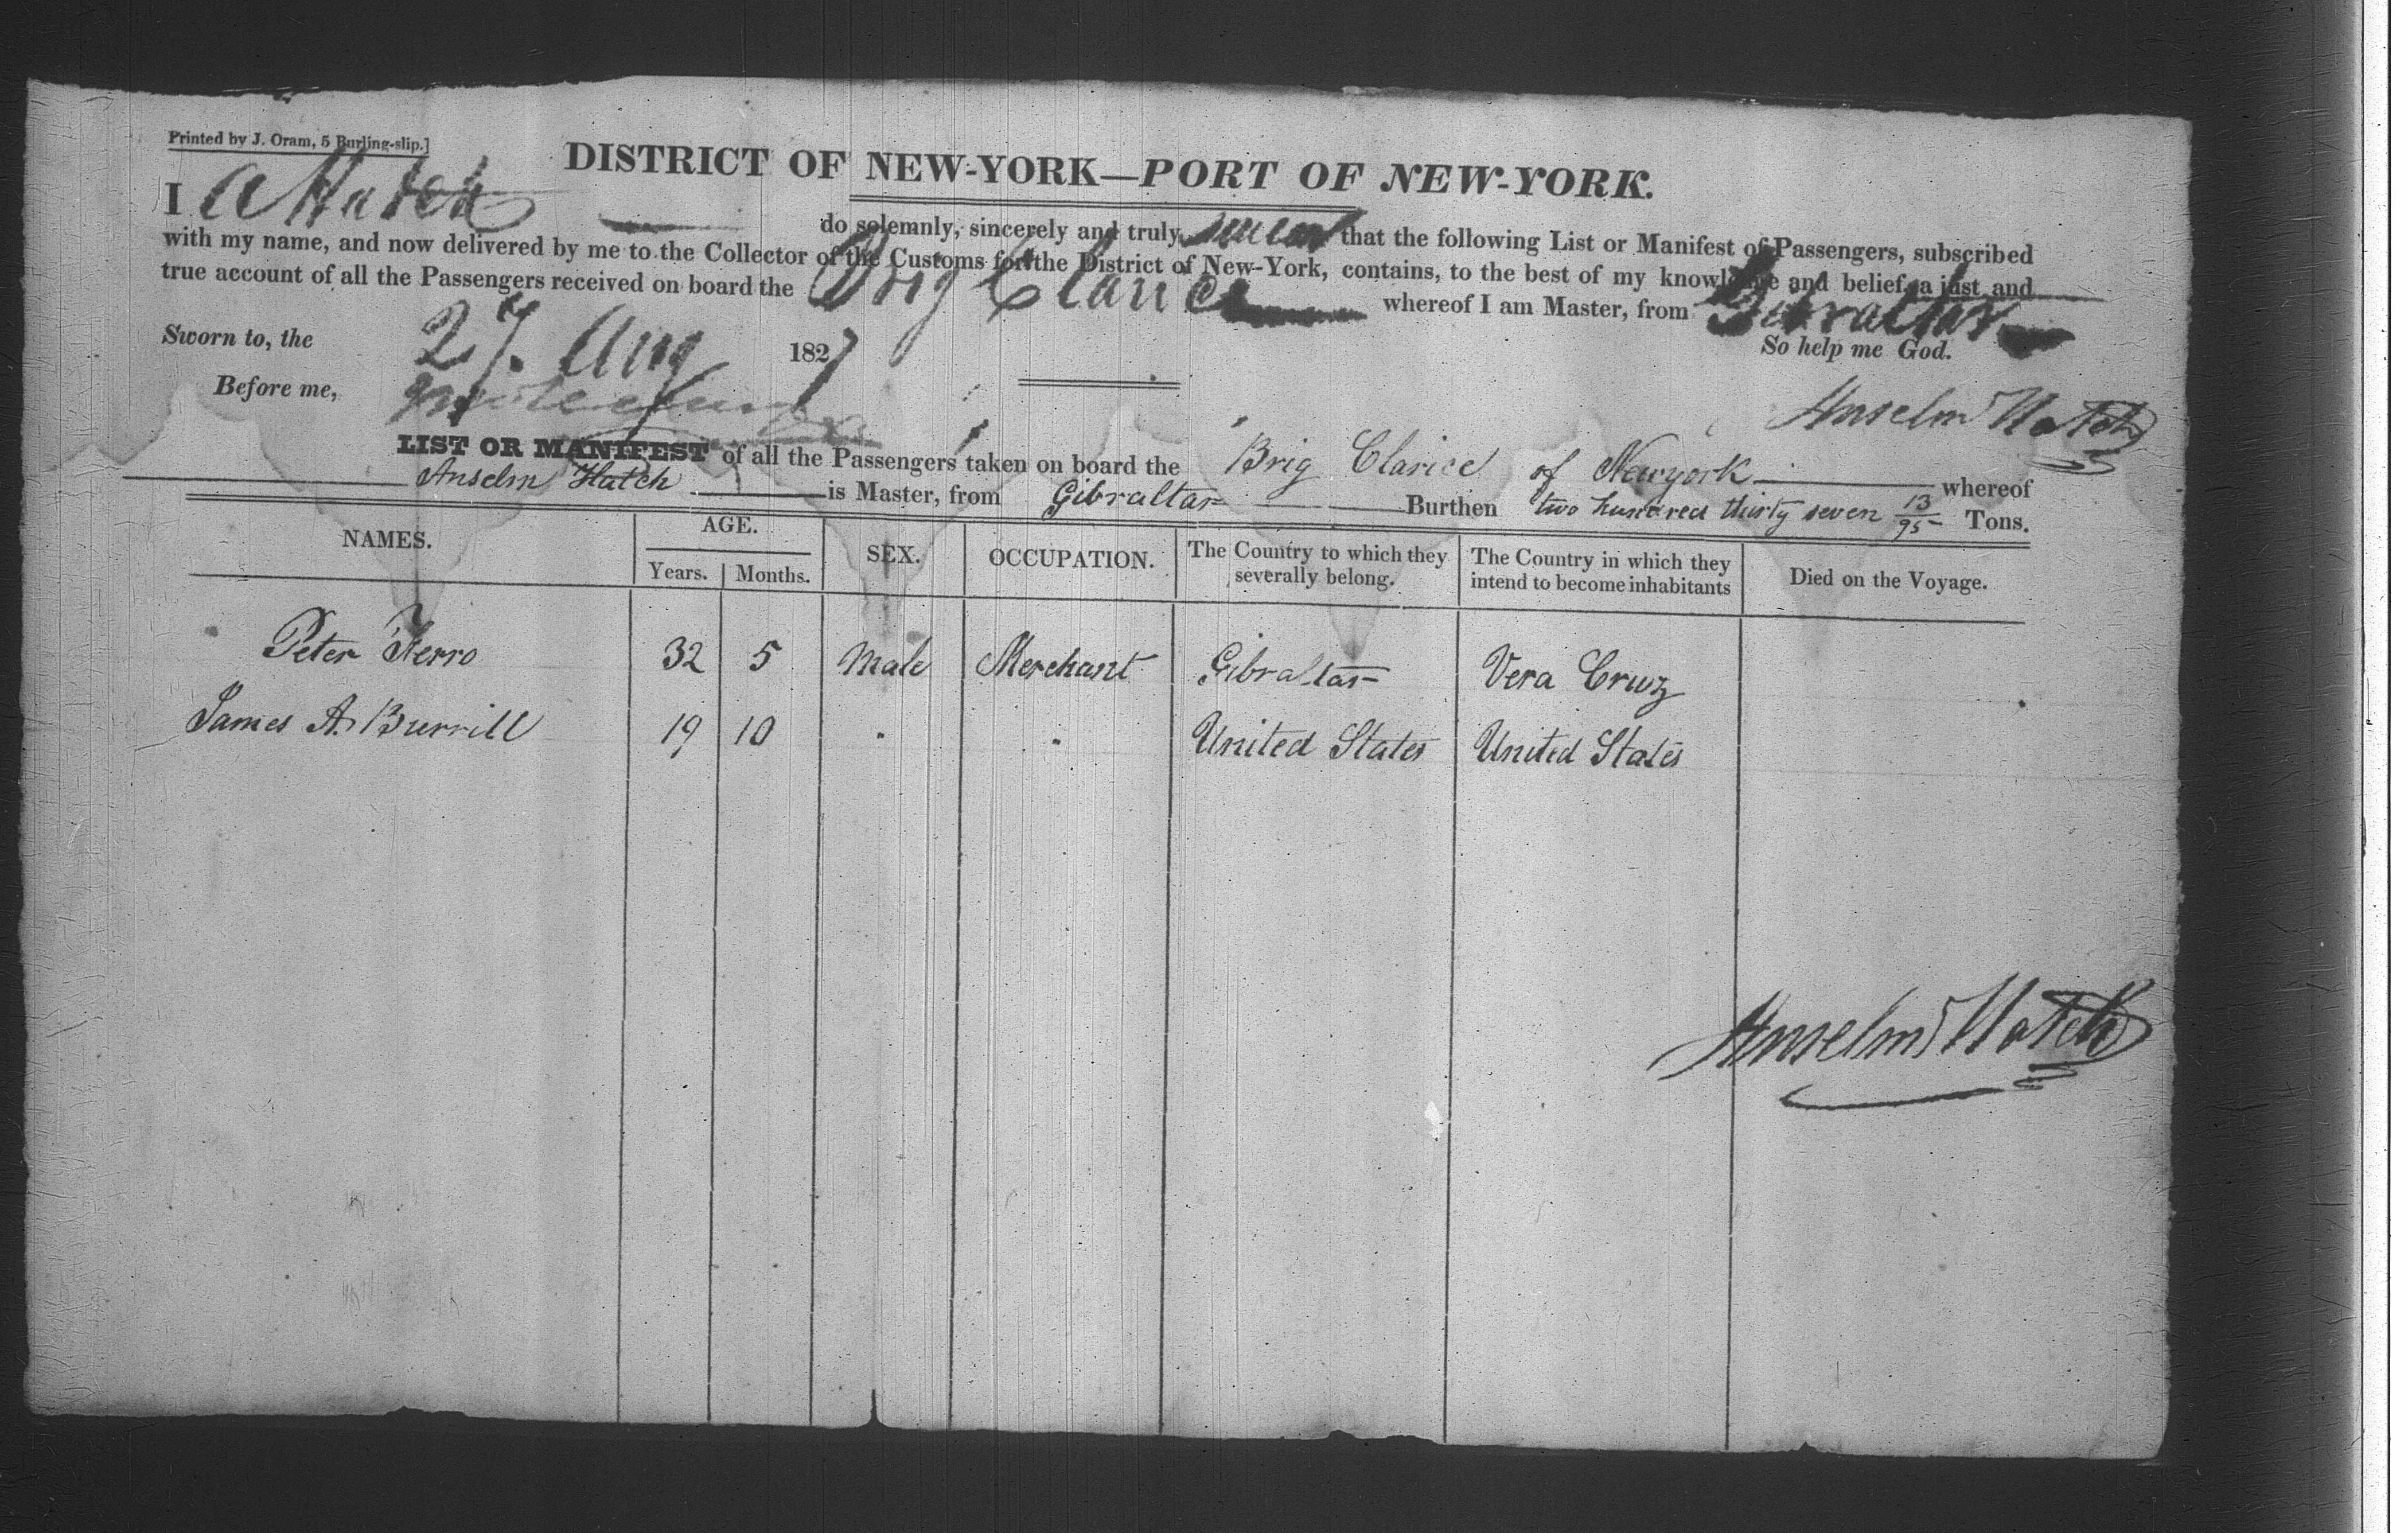 Printed by J. Oram, 5 Burling-slip.]
DISTRICT OF NEW-YORK—PORT OF NEW-YORK.
I A Hatch do solemnly, sincerely and truly swear that the following List or Manifest of Passengers, subscribed
with my name, and now delivered by me to the Collector of the Customs for the District of New-York, contains, to the best of my knowledge and belief, a just and
true account of all the Passengers received on board the Brig Clarice whereof I am Master, from Gibraltar
Sworn to, the 27 Aug 1827 So help me God.
Before me, Anselm Hatch
LIST OR MANIFEST of all the Passengers taken on board the Brig Clarice of Newyork whereof
Anselm Hatch is Master, from Gibraltar Burthen two hundred thirty seven 13/95 Tons.
NAMES. AGE. SEX. OCCUPATION. The Country to which they severally belong. The Country in which they intend to become inhabitants Died on the Voyage.
Years. Months.
Peter Ferro 32 5 Male Merchant Gibraltar Vera Cruz
James A. Burrill 19 10 " " United States United States
Anselm Hatch